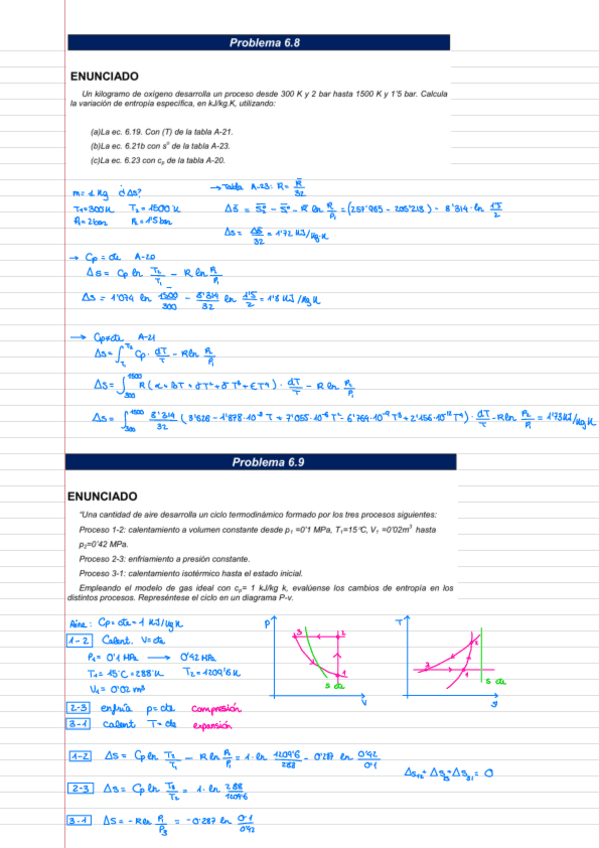 Problema 6.8
ENUNCIADO
Un kilogramo de oxígeno desarrolla un proceso desde 300 K y 2 bar hasta 1500 K y 1'5 bar. Calcula
la variación de entropía específica, en kJ/kg.K, utilizando:
(a)La ec. 6.19. Con (T) de la tabla A-21.
(b)La ec. 6.21b con s° de la tabla A-23.
(c)La ec. 6.23 con cp de la tabla A-20.
m = 1 kg ¿Δs?
T1=300K T2=1500K
P1=2bar P2=1'5bar
→ Tabla A-23: R = R̄/32
Δs̄ = s̄2° - s̄1° - R ln P2/P1 = (257'965 - 205'213) - 8'314 · ln 1'5/2
Δs = Δs̄/32 = 1'72 KJ/kg·K
→ Cp = cte A-20
Δs = Cp ln T2/T1 - R ln P2/P1
Δs = 1'074 ln 1500/300 - 8'314/32 ln 1'5/2 = 1'8 KJ/kg K
→ Cp≠cte A-21
Δs = ∫ Cp · dT/T - R ln P2/P1
Δs = ∫ R (α + βT + γT² + δT³ + εT⁴) · dT/T - R ln P2/P1
Δs = ∫ 8'314/32 (3'626 - 1'878·10⁻³ T + 7'055·10⁻⁶ T² - 6'764·10⁻⁹ T³ + 2'156·10⁻¹² T⁴) · dT/T - R ln P2/P1 = 1'73 KJ/kg K
Problema 6.9
ENUNCIADO
"Una cantidad de aire desarrolla un ciclo termodinámico formado por los tres procesos siguientes:
Proceso 1-2: calentamiento a volumen constante desde p1 =0'1 MPa, T1=15°C, V1 =0'02m³ hasta
p2=0'42 MPa.
Proceso 2-3: enfriamiento a presión constante.
Proceso 3-1: calentamiento isotérmico hasta el estado inicial.
Empleando el modelo de gas ideal con cp= 1 kJ/kg k, evalúense los cambios de entropía en los
distintos procesos. Represéntese el ciclo en un diagrama P-v.
Aire: Cp = cte = 1 KJ/kg K
1-2 Calent. V=cte
P1 = 0'1 MPa → 0'42 MPa
T1 = 15°C = 288 K T2 = 1209'6 K
V1 = 0'02 m³
2-3 enfría p=cte compresión
3-1 calent T=cte expansión
P 3 2 1 s cte V
T 2 3 1 s cte
1-2 Δs = Cp ln T2/T1 - R ln P2/P1 = 1 · ln 1209'6/288 - 0'287 ln 0'42/0'1
2-3 Δs = Cp ln T3/T2 = 1 · ln 288/1209'6
3-1 Δs = -R ln P1/P3 = -0'287 ln 0'1/0'42
Δs12 + Δs23 + Δs31 = 0